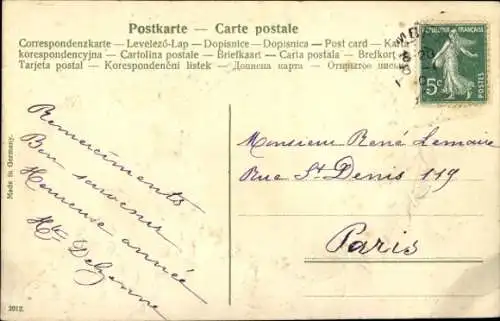 Postkarte — Carte postale
Correspondenzkarte — Levelező-Lap — Dopisnice — Dopisnica — Post card — Karta
korespondencyjna — Cartolina postale — Briefkaart — Carta postala — Brefkort
Tarjeta postal — Korespondenční listek — Дописна карта — Открытое
RÉPUBLIQUE FRANÇAISE
5c
POSTES
Remerciments
Bon souvenir
Heureuse année
Hte Delzenne
Monsieur René Lemaire
Rue St Denis 119
Paris
Made in Germany.
2012.